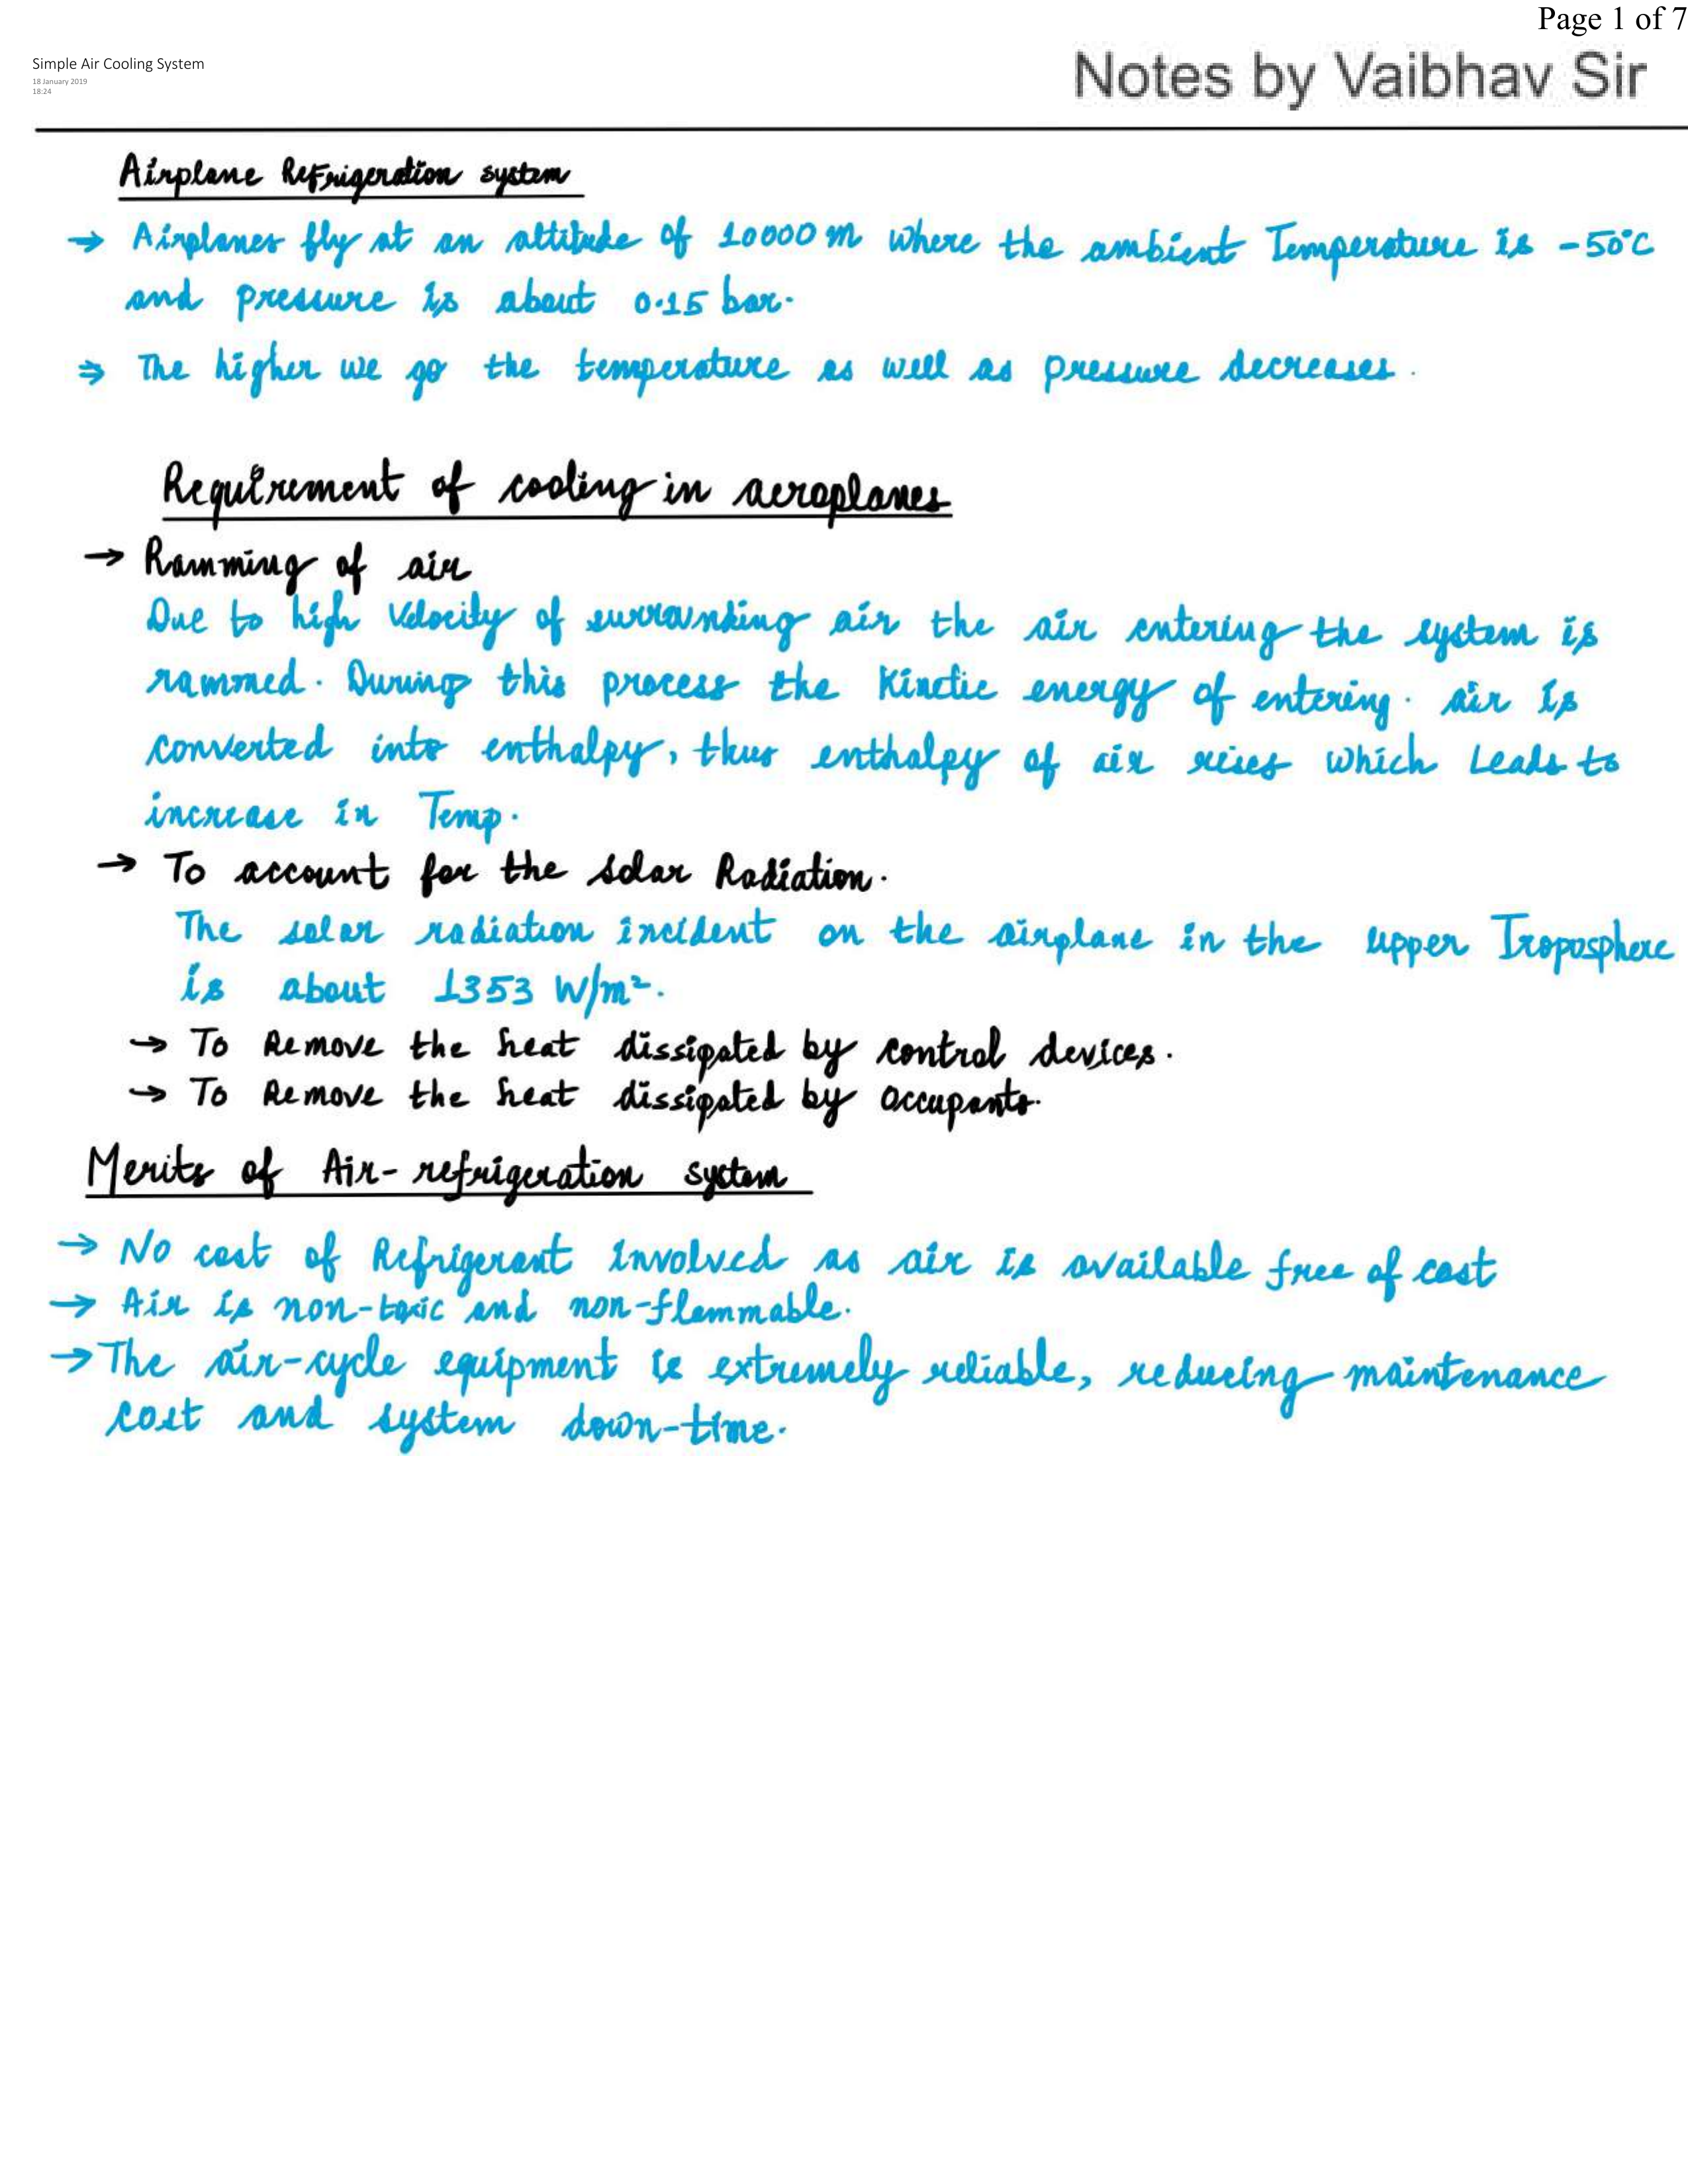 Page 1 of 7
Simple Air Cooling System
18 January 2019
18:24
Notes by Vaibhav Sir
Airplane Refrigeration system
→ Airplanes fly at an altitude of 10000 m where the ambient Temperature is -50°C
and pressure is about 0.15 bar.
⇒ The higher we go the temperature as well as pressure decreases.
Requirement of cooling in aeroplanes
→ Ramming of air
Due to high velocity of surrounding air the air entering the system is
rammed. During this process the Kinetic energy of entering. air is
converted into enthalpy, thus enthalpy of air rises which Leads to
increase in Temp.
→ To account for the solar Radiation.
The solar radiation incident on the airplane in the upper Troposphere
is about 1353 W/m².
→ To Remove the heat dissipated by control devices.
→ To Remove the heat dissipated by occupants.
Merits of Air-refrigeration system
→ No cost of Refrigerant involved as air is available free of cost
→ Air is non-toxic and non-flammable.
→ The air-cycle equipment is extremely reliable, reducing maintenance
cost and system down-time.